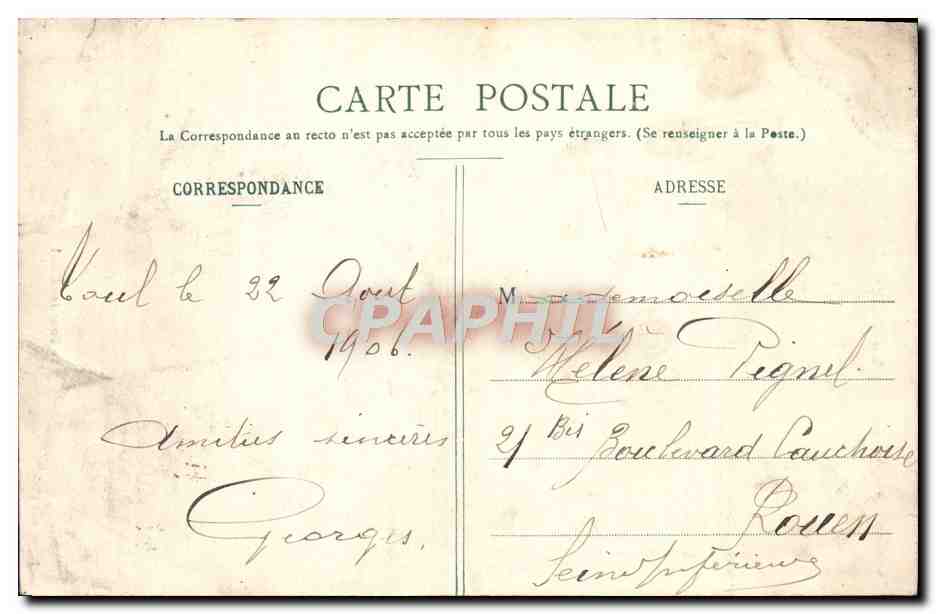 CARTE POSTALE
La Correspondance au recto n'est pas acceptée par tous les pays étrangers. (Se renseigner à la Poste.)
CORRESPONDANCE
Toul le 22 Aout
1906.
Amitiés sincères
Georges.
CPAPHIL
ADRESSE
Mademoiselle
Hélène Pignel.
21 Bis Boulevard Cauchoise
Rouen
Seine Inférieure